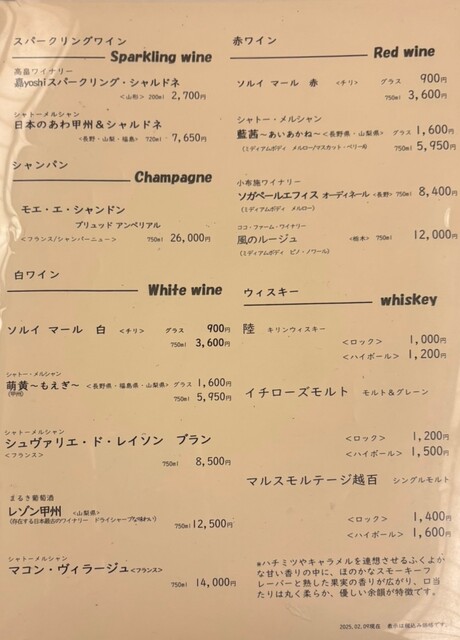 スパークリングワイン
Sparkling wine
高畠ワイナリー
嘉yoshiスパークリング・シャルドネ
<山形> 200ml 2,700円
シャトーメルシャン
日本のあわ甲州&シャルドネ
<長野・山梨・福島> 720ml 7,650円
シャンパン
Champagne
モエ・エ・シャンドン
ブリュッド アンペリアル
<フランス/シャンパーニュー> 750ml 26,000円
白ワイン
White wine
ソルイ マール 白 <チリ> グラス 900円
750ml 3,600円
シャトー・メルシャン
萌黄~もえぎ~ <長野県・福島県・山梨県> グラス 1,600円
(甲州) 750ml 5,950円
シャトーメルシャン
シュヴァリエ・ド・レイソン ブラン
<フランス> 750ml 8,500円
まるき葡萄酒
レゾン甲州 <山梨県>
(存在する日本最古のワイナリー ドライシャープな味わい) 750ml 12,500円
シャトーメルシャン
マコン・ヴィラージュ<フランス>
750ml 14,000円
赤ワイン
Red wine
ソルイ マール 赤 <チリ> グラス 900円
750ml 3,600円
シャトー・メルシャン
藍茜~あいあかね~<長野県・山梨県> グラス 1,600円
(ミディアムボディ メルロー/マスカット・ベリーA) 750ml 5,950円
小布施ワイナリー
ソガペールエフィス オーディネール <長野> 750ml 8,400円
(ミディアムボディ メルロー)
ココ・ファーム・ワイナリー
風のルージュ <栃木> 750ml 12,000円
(ミディアムボディ ピノ・ノワール)
ウィスキー
whiskey
陸 キリンウィスキー
<ロック> 1,000円
<ハイボール> 1,200円
イチローズモルト モルト&グレーン
<ロック> 1,200円
<ハイボール> 1,500円
マルスモルテージ越百 シングルモルト
<ロック> 1,400円
<ハイボール> 1,600円
*ハチミツやキャラメルを連想させるふくよか
な甘い香りの中に、ほのかなスモーキーフ
レーバーと熟した果実の香りが広がり、口当
たりは丸く柔らか、優しい余韻が特徴です。
2025.02.09現在 表示は税込み価格です。